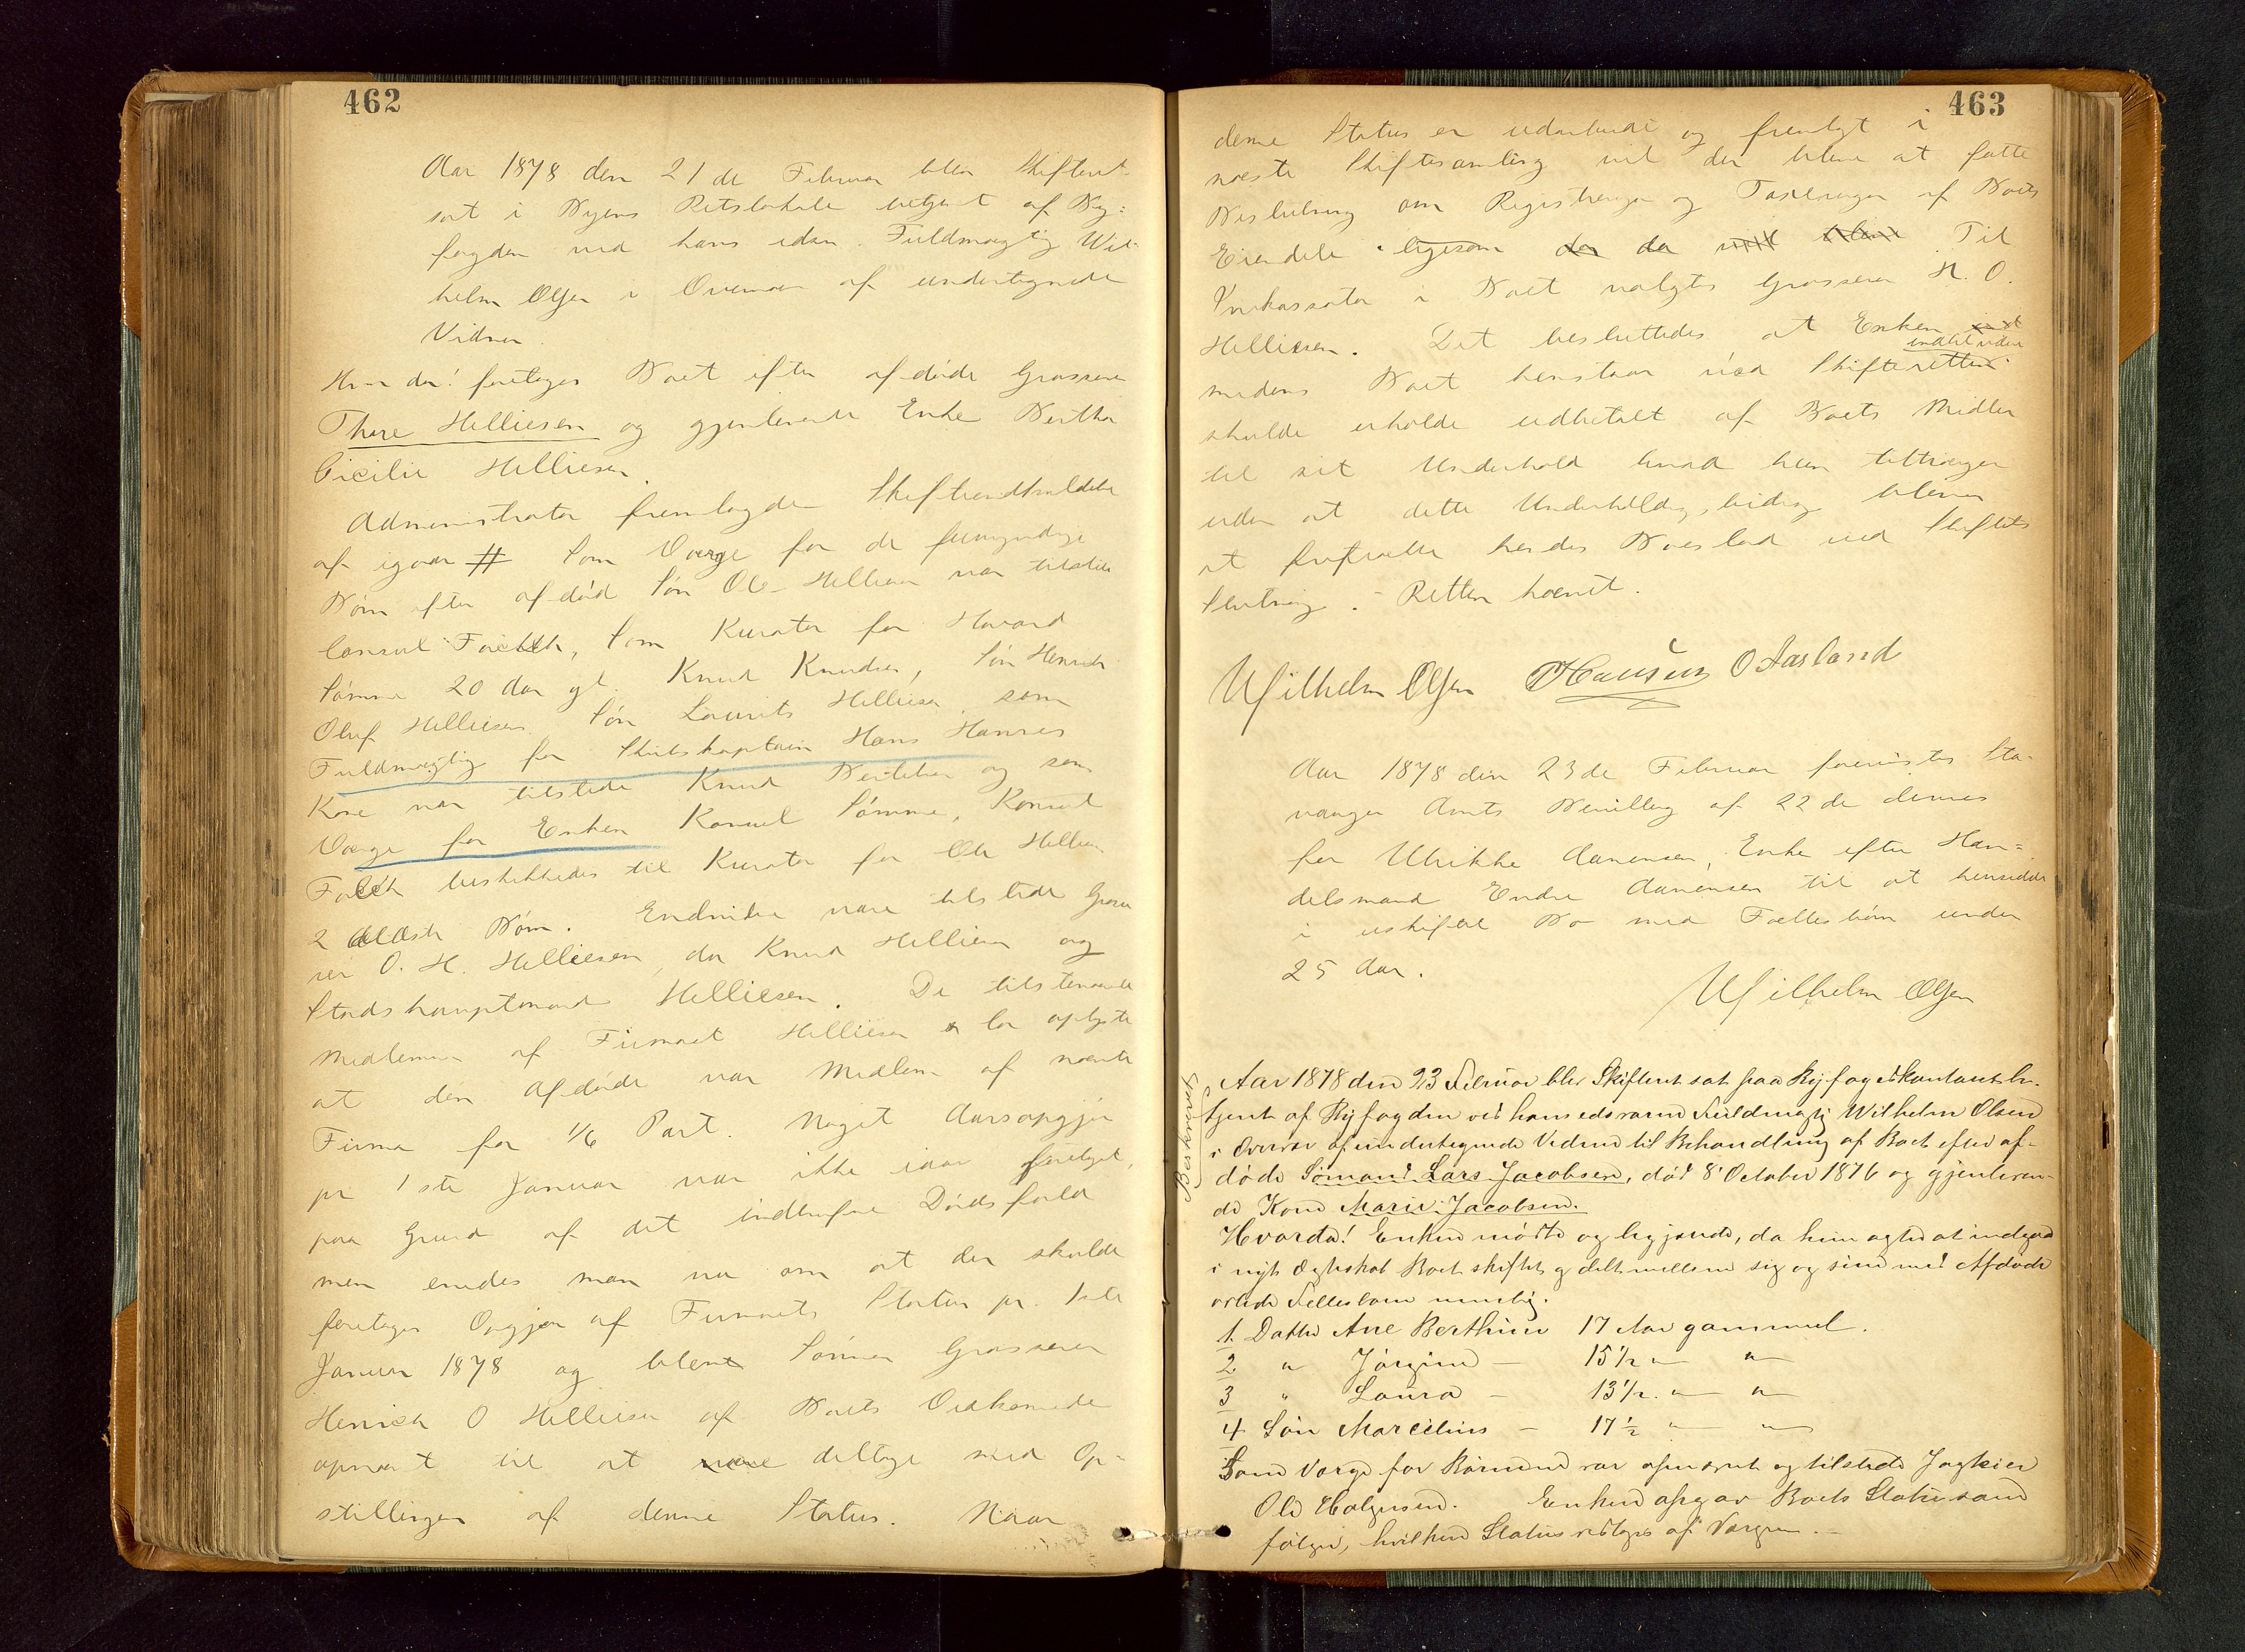 462
Aar 1878 den 21de Februar blev Skifteret
sat i Byens Retslokale betjent af By=
fogden ved hans edsv. Fuldmægtig Wil-
helm Olsen i Overvær af undertegnede
Vidner.
Hvor da! foretoges Boet efter afdøde Grosserer
Thore Helliesen og gjenlevende Enke Bertha
Cicilie Helliesen.
Administrator fremlagde Skifteindkaldelse
af igaar # Som Værge for de umyndige
Børn efter afdød Søn Ole Helliesen var tilstede
Consul Falck, Som Kurator for Havard
Sømme 20 Aar gl. Knud Knudsen, Søn Henrik
Oluf Helliesen. Søn Laurits Helliesen, som
Fuldmægtig for Skibskaptain Hans Hansen
Kore var tilstede Knud Bertelsen og som
Værge for Enken Konsul Sømme, Konsul
Falck beskikkedes til Kurator for Ole Helliesens
2 ældste Børn. Endvidere vare tilstede Grosse
rer O. H. Helliesen, do Knud Helliesen og
Stadshauptmand Helliesen. De tilstedeværende
Medlemmer af Firmaet Helliesen & Co oplyste
at den Afdøde var Medlem af nævnte
Firma for 1/6 Part. Noget Aarsopgjør
pr 1ste Januar var ikke iaar foretaget,
paa Grund af det indtrufne Dødsfald
men enedes man nu om at der skulde
foretages Opgjør af Firmaets Status pr. 1ste
Januar 1878 og blev Sønnen Grosserer
Henrich O Helliesen af Boets Vedkommende
opnævnt til at være deltage med Op-
stillingen af denne Status. Naar
463
denne Status er udarbeidet og fremlagt i
næste Skiftesamling vil der blive at fatte
Beslutning om Registreringen og Taxeringen af Boets
Eiendele ligesom der da vil blive Til
Inkassator i Boet valgtes Grosserer H. O.
Helliesen. Det besluttedes at Enken
indtil videre
medens Boet henstaar ved Skifteretten
skulde erholde udbetalt af Boets Midler
til sit Underhold hvad hun tiltrænger
uden at dette Underholdsbidrag bliver
at fratrække hendes Boeslod ved Skiftets
Slutning. - Retten hævet.
Wilhelm Olsen Hansen O Aasland
Aar 1878 den 23de Februar forevistes Sta-
vanger Amts Bevilling af 22de dennes
for Ulrikke Aanensen, Enke efter Han=
delsmand Endre Aanensen til at hensidde
i uskiftet Bo med Fællesbørn under
25 Aar.
Wilhelm Olsen
Beskrevet
Aar 1878 den 23 Februar blev Skifteret sat paa Byfogedkontoret be-
tjent af Byfogden ved hans edsvorne Fuldmægtig Wilhelm Olsen
i Overvær af undertegnede Vidner til Behandling af Boet efter af-
døde Sømand Lars Jacobsen, død 8' October 1876 og gjenleven-
de Kone Marie Jacobsen.
Hvorda! Enken mødte og begjærede, da hun agter at indgaa
i nyt Ægteskab Boet skiftet og delt mellem sig og sine med Afdøde
avlede Fellesbørn nemlig.
1. Datter Ane Berthine 17 Aar gammel.
2 " Jørgine - 15½ " "
3 " Laura - 13½ " "
4 Søn Marcelius - 17½ " "
Som Værge for Børnene var opnævnt og tilstede
Ole Helgesen. Enken opgav Boets Status som
følger, hvilken Status vedtoges af Værgen. -